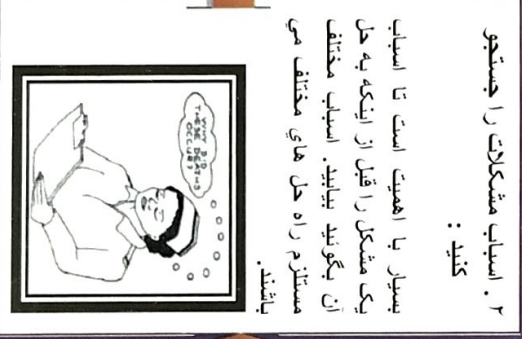 ۲ . اسباب مشکلات را جستجو
کنید :
بسیار با اهمیت است تا اسباب
یک مشکل را قبل از اینکه به حل
آن بگوئید بیابید . اسباب مختلف
مستلزم راه حل های مختلف می
باشند.
WHY DID
THESE DEATHS
OCCUR?